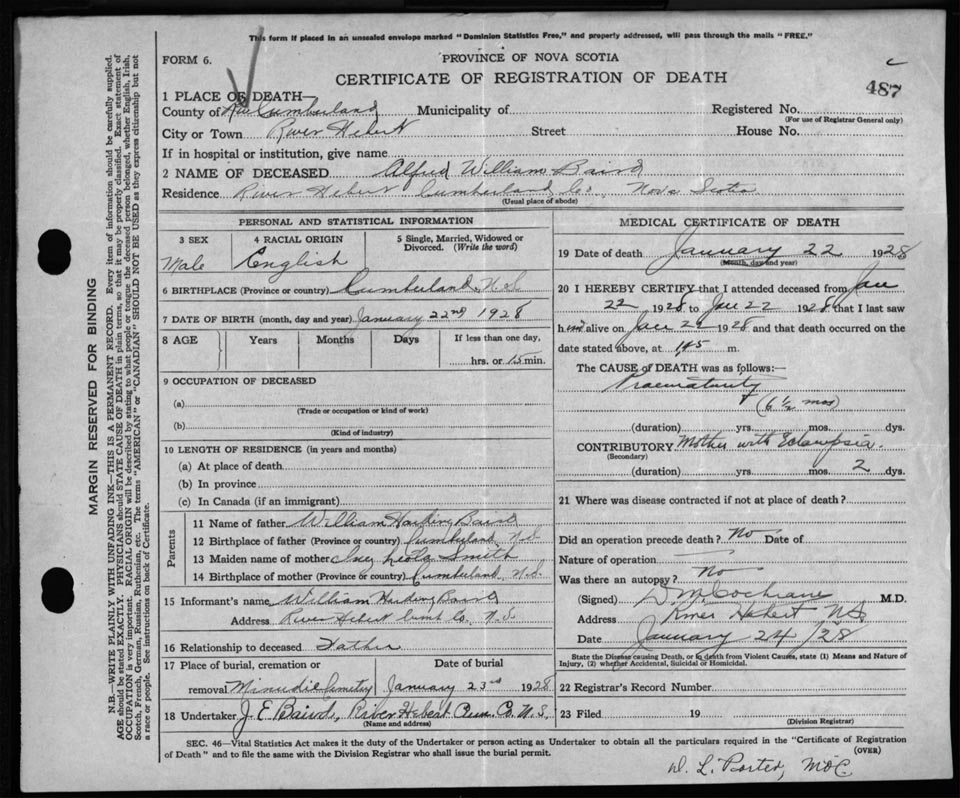 This form if placed in an unsealed envelope marked "Dominion Statistics Free," and properly addressed, will pass through the mails "FREE."
FORM 6.
PROVINCE OF NOVA SCOTIA
CERTIFICATE OF REGISTRATION OF DEATH
487
1 PLACE OF DEATH—
County of Cumberland Municipality of Registered No.
(For use of Registrar General only)
City or Town River Hebert Street House No.
If in hospital or institution, give name
2 NAME OF DECEASED Alfred William Baird
Residence River Hebert Cumberland Co. Nova Scotia
(Usual place of abode)
PERSONAL AND STATISTICAL INFORMATION
3 SEX 4 RACIAL ORIGIN 5 Single, Married, Widowed or Divorced. (Write the word)
Male English
6 BIRTHPLACE (Province or country) Cumberland, N.S.
7 DATE OF BIRTH (month, day and year) January 22nd 1928
8 AGE Years Months Days If less than one day,
hrs. or 15 min.
9 OCCUPATION OF DECEASED
(a)
(Trade or occupation or kind of work)
(b)
(Kind of industry)
10 LENGTH OF RESIDENCE (in years and months)
(a) At place of death
(b) In province
(c) In Canada (if an immigrant)
Parents
11 Name of father William Harding Baird
12 Birthplace of father (Province or country) Cumberland N.S.
13 Maiden name of mother Smith
14 Birthplace of mother (Province or country) Cumberland N.S.
15 Informant's name William Harding Baird
Address River Hebert Cumb Co. N.S.
16 Relationship to deceased Father
17 Place of burial, cremation or Date of burial
removal Minudie Cemetery January 23rd 1928
18 Undertaker J. E. Baird, River Hebert Cum. Co. N.S.
(Name and address)
MEDICAL CERTIFICATE OF DEATH
19 Date of death January 22 1928
(Month, day and year)
20 I HEREBY CERTIFY that I attended deceased from Jan
22 1928 to Jan 22 1928 that I last saw
him alive on Jan 22 1928 and that death occurred on
date stated above, at m.
The CAUSE of DEATH was as follows:—
Praematurity
(6 ½ mos)
(duration) yrs. mos. dys.
CONTRIBUTORY Mother with Eclampsia.
(Secondary)
(duration) yrs. mos. 2 dys.
21 Where was disease contracted if not at place of death?
Did an operation precede death? No Date of
Nature of operation
Was there an autopsy? No
(Signed) D M Cochrane M.D.
Address River Hebert N.S.
Date January 24/28
State the Disease causing Death, or in death from Violent Causes, state (1) Means and Nature of
Injury, (2) whether Accidental, Suicidal or Homicidal.
22 Registrar's Record Number
23 Filed 19
(Division Registrar)
SEC. 46—Vital Statistics Act makes it the duty of the Undertaker or person acting as Undertaker to obtain all the particulars required in the "Certificate of Registration
of Death" and to file the same with the Division Registrar who shall issue the burial permit.
(OVER)
D. L. Porter, MOC.
MARGIN RESERVED FOR BINDING
N.B.—WRITE PLAINLY WITH UNFADING INK—THIS IS A PERMANENT RECORD. Every item of information should be carefully supplied.
AGE should be stated EXACTLY. PHYSICIANS should STATE CAUSE OF DEATH in plain terms, so that it may be properly classified. Exact statement of
OCCUPATION is very important. RACIAL ORIGIN will be described by stating to what people or tongue the deceased person belonged, whether English, Irish,
Scotch, French, German, Russian, Ruthenian, etc. The terms "AMERICAN" or "CANADIAN" SHOULD NOT BE USED as they express citizenship but not
a race or people. See instructions on back of Certificate.